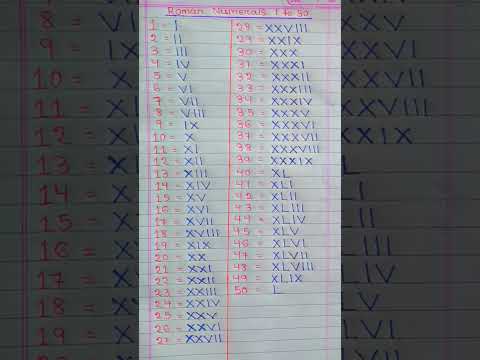 Roman Numerals 1 to 50.
1 = I
2 = II
3 = III
4 = IV
5 = V
6 = VI
7 = VII
8 = VIII
9 = IX
10 = X
11 = XI
12 = XII
13 = XIII
14 = XIV
15 = XV
16 = XVI
17 = XVII
18 = XVIII
19 = XIX
20 = XX
21 = XXI
22 = XXII
23 = XXIII
24 = XXIV
25 = XXV
26 = XXVI
27 = XXVII
28 = XXVIII
29 = XXIX
30 = XXX
31 = XXXI
32 = XXXII
33 = XXXIII
34 = XXXIV
35 = XXXV
36 = XXXVI
37 = XXXVII
38 = XXXVIII
39 = XXXIX
40 = XL
41 = XLI
42 = XLII
43 = XLIII
44 = XLIV
45 = XLV
46 = XLVI
47 = XLVII
48 = XLVIII
49 = XLIX
50 = L